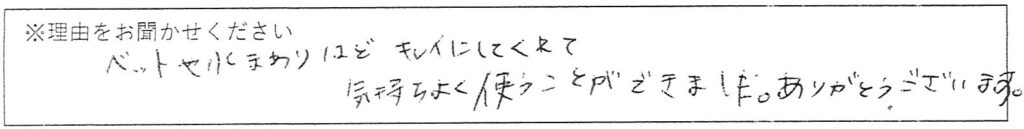 ※理由をお聞かせください
ベットや水まわりほど キレイにしてくれて
気持ちよく使うことができました。ありがとうございます。